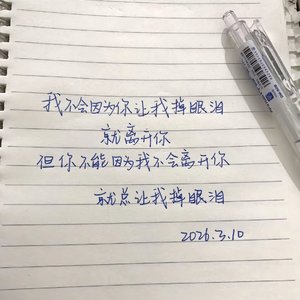 我不会因为你让我掉眼泪
就离开你
但你不能因为我不会离开你
就总让我掉眼泪
2026.3.10